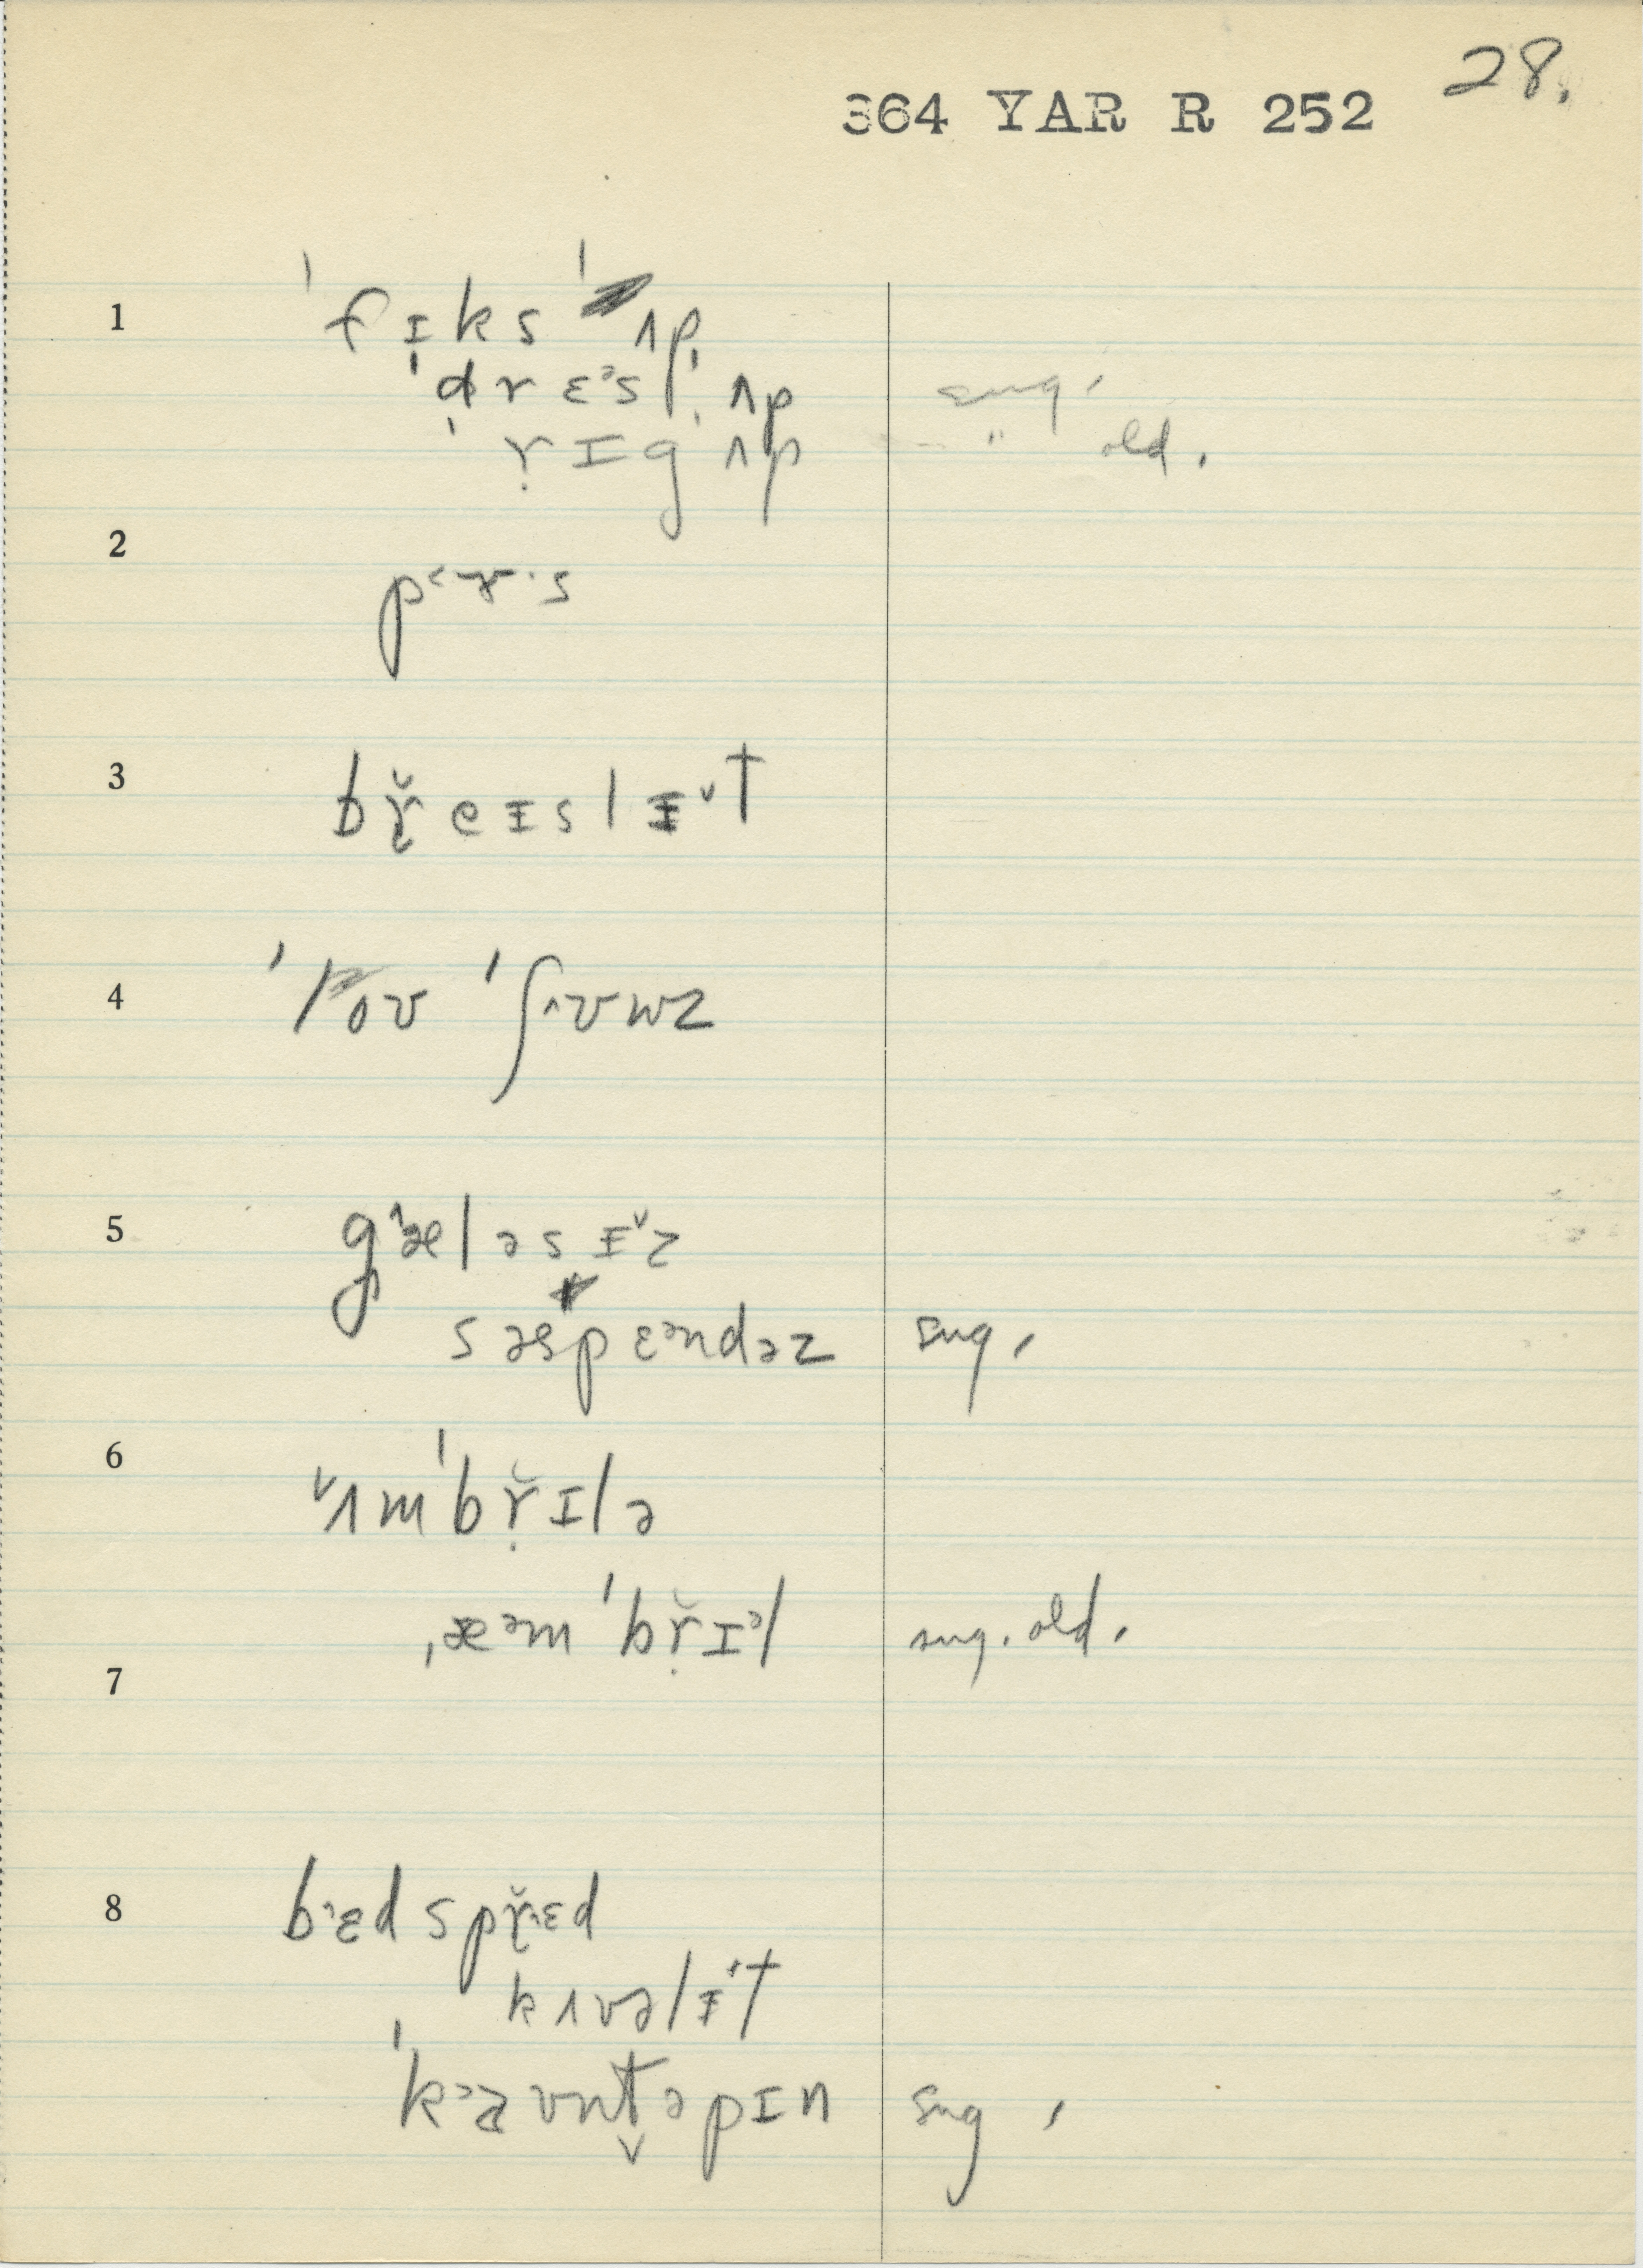 28.
364 YAR R 252
1 ˈfɪks ˈʌp
ˈdrɛᵊs ˈʌp sug.
ˈrɪg ˈʌp " old.
2 pɚ·s
3 bṛ̌eɪslɪ̵ˇt
4 ˈʃʌvwz
5 g˄æləsɪ̵ˇz
səspɛᵊndəz sug.
6 ˇʌmˈbṛ̌ɪlə
ˌæᵊmˈbṛ̌ɪᵊl sug. old.
7
8 b˄ɛd spṛ̌˄ɛd
kʌvəlɪ̵t
ˈkaʊntəpɪn sug.